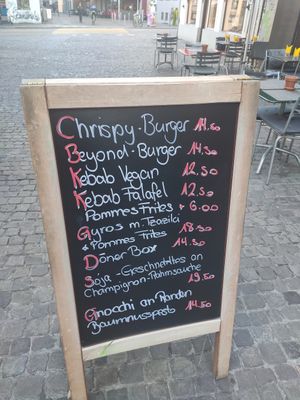 Chrispy-Burger 14.50
Beyond-Burger 14.50
Kebab Vegan 12.50
Kebab Falafel 12.50
Pommes Frites + 6.00
Gyros m. Tzaziki 18.50
+ Pommes Frites
Döner Box 14.50
Soja-Geschnetzltes an
Champignon-Rahmsauce 19.50
Gnocchi an Randen
Baumnusspesto 14.50